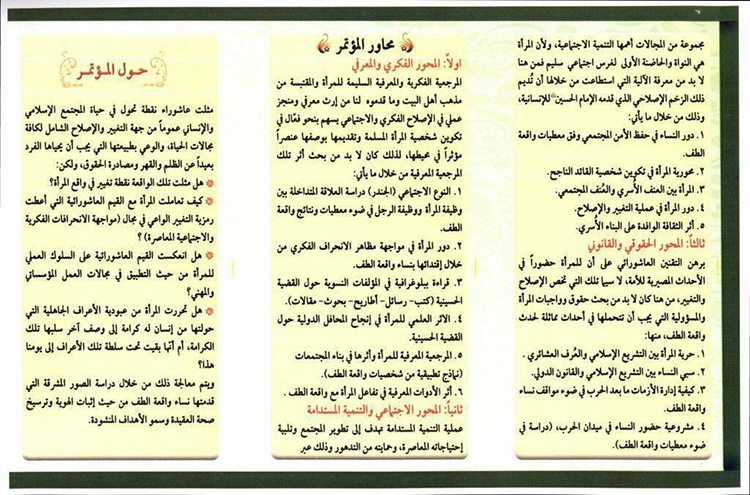 حول المؤتمر
مثلت عاشوراء نقطة تحول في حياة المجتمع الإسلامي
والإنساني عموماً من جهة التغيير والإصلاح الشامل لكافة
مجالات الحياة، والوعي بطبيعتها التي يجب أن يحياها الفرد
بعيداً عن الظلم والقهر ومصادرة الحقوق، ولكن:
هل مثلت تلك الواقعة نقطة تغيير في واقع المرأة؟
كيف تعاملت المرأة مع القيم العاشورائية التي أعطت
رمزية التغيير الواعي في مجال (مواجهة الانحرافات الفكرية
والاجتماعية المعاصرة) ؟
هل انعكست القيم العاشورائية على السلوك العملي
للمرأة من حيث التطبيق في مجالات العمل المؤسساتي
والمهني؟
هل تحررت المرأة من عبودية الأعراف الجاهلية التي
حولتها من إنسان له كرامة إلى وصف آخر سلبها تلك
الكرامة، أم أنها بقيت تحت سلطة تلك الأعراف إلى يومنا
هذا؟
ويتم معالجة ذلك من خلال دراسة الصور المشرقة التي
قدمتها نساء واقعة الطف من حيث إثبات الهوية وترسيخ
صحة العقيدة وسمو الأهداف المنشودة.
محاور المؤتمر
اولاً: المحور الفكري والمعرفي
المرجعية الفكرية والمعرفية السليمة للمرأة والمقتبسة من
مذهب أهل البيت وما قدموه لنا من إرث معرفي ومنجز
عملي في الإصلاح الفكري والاجتماعي يسهم بنحو فعّال في
تكوين شخصية المرأة المسلمة وتقديمها بوصفها عنصراً
مؤثراً في محيطها، لذلك كان لا بد من بحث أثر تلك
المرجعية المعرفية من خلال ما يأتي:
١. النوع الاجتماعي (الجندر) دراسة العلاقة المتداخلة بين
وظيفة المرأة ووظيفة الرجل في ضوء معطيات ونتائج واقعة
الطف.
٢. دور المرأة في مواجهة مظاهر الانحراف الفكري من
خلال إقتدائها بنساء واقعة الطف.
٣. قراءة ببلوغرافية في المؤلفات النسوية حول القضية
الحسينية (كتب- رسائل- أطاريح- بحوث- مقالات).
٤. الاثر العلمي للمرأة في إنجاح المحافل الدولية حول
القضية الحسينية.
٥. المرجعية المعرفية للمرأة وأثرها في بناء المجتمعات
(نماذج تطبيقية من شخصيات واقعة الطف).
٦. أثر الأدوات المعرفية في تفاعل المرأة مع واقعة الطف.
ثانياً: المحور الاجتماعي والتنمية المستدامة
عملية التنمية المستدامة تهدف إلى تطوير المجتمع وتلبية
إحتياجاته المعاصرة، وحمايته من التدهور وذلك عبر
مجموعة من المجالات أهمها التنمية الاجتماعية، ولأن المرأة
هي النواة والحاضنة الأولى لغرس اجتماعي سليم فمن هنا
لا بد من معرفة الآلية التي استطاعت من خلالها أن تُديم
ذلك الزخم الإصلاحي الذي قدمه الإمام الحسين للإنسانية،
وذلك من خلال ما يأتي:
١. دور النساء في حفظ الأمن المجتمعي وفق معطيات واقعة
الطف.
٢. محورية المرأة في تكوين شخصية القائد الناجح.
٣. المرأة بين العنف الأسري والعُنف المجتمعي.
٤. دور المرأة في عملية التغيير والإصلاح.
٥. أثر الثقافة الوافدة على البناء الأسري.
ثالثاً: المحور الحقوقي والقانوني
برهن التقنين العاشورائي على أن للمرأة حضوراً في
الأحداث المصيرية للأمة، لا سيما تلك التي تخص الإصلاح
والتغيير، من هنا كان لا بد من بحث حقوق وواجبات المرأة
والمسؤولية التي يجب أن تتحملها في أحداث مماثلة لحدث
واقعة الطف، منها:
١. حرية المرأة بين التشريع الإسلامي والعُرف العشائري .
٢. سبي النساء بين التشريع الإسلامي والقانون الدولي.
٣. كيفية إدارة الأزمات ما بعد الحرب في ضوء مواقف نساء
واقعة الطف.
٤. مشروعية حضور النساء في ميدان الحرب، (دراسة في
ضوء معطيات واقعة الطف).